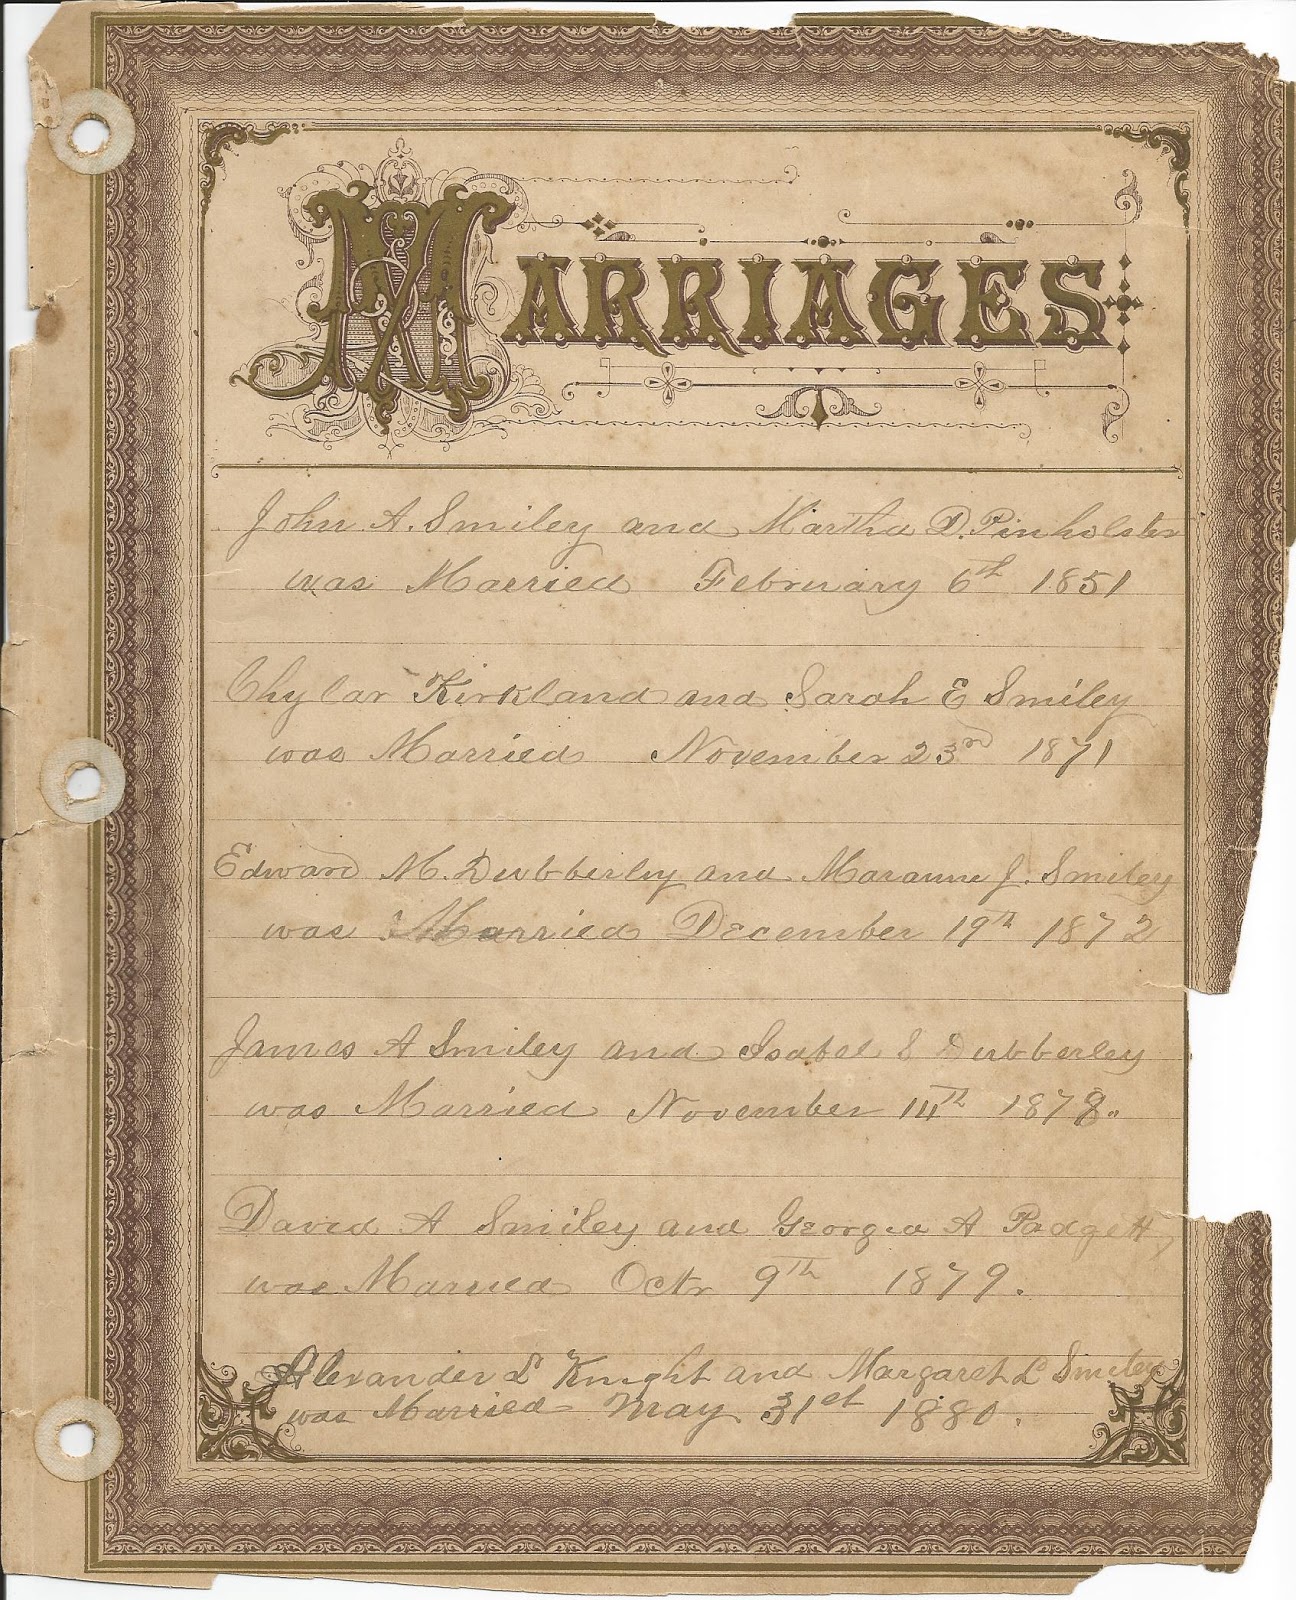 MARRIAGES
John A. Smiley and Martha D. Pinholster
was Married February 6th 1851
Chylar Kirkland and Sarah E Smiley
was Married November 23rd 1871
Edward M. Dubberley and Maranne J. Smiley
was Married December 19th 1872
James A Smiley and Isabel S Dubberley
was Married November 14th 1878.
David A Smiley and Georgea A Padgett
was Married Octr 9th 1879.
Alexander S Knight and Margaret L Smiley
was Married May 31st 1880.